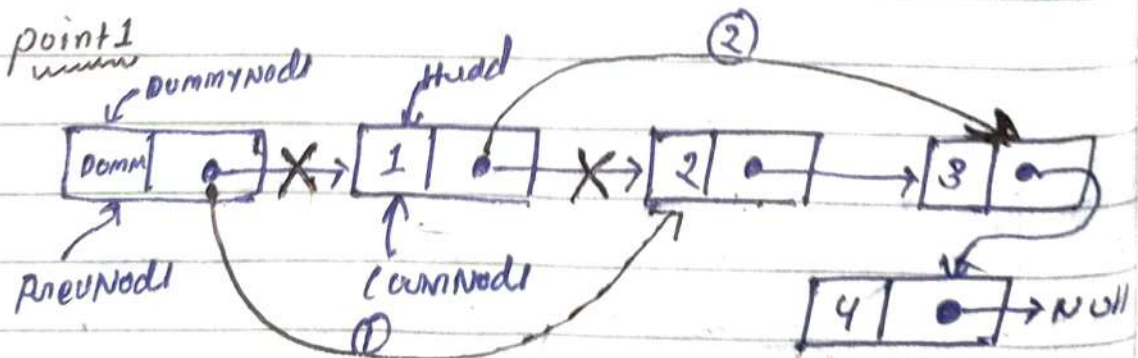 point1
②
DummyNode
Head
Domm
1
2
3
PrevNode
CurrNode
①
4
NUll